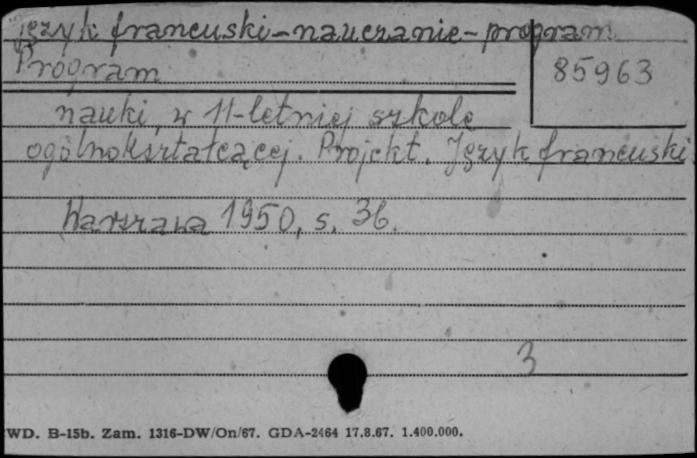 język francuski-nauczanie-program
Program
85963
nauki w 11-letniej szkole
ogólnokształcącej. Projekt. Język francuski.
Warszawa 1950, s. 36.
3
WD. B-15b. Zam. 1316-DW/On/67. GDA-2464 17.8.67. 1.400.000.